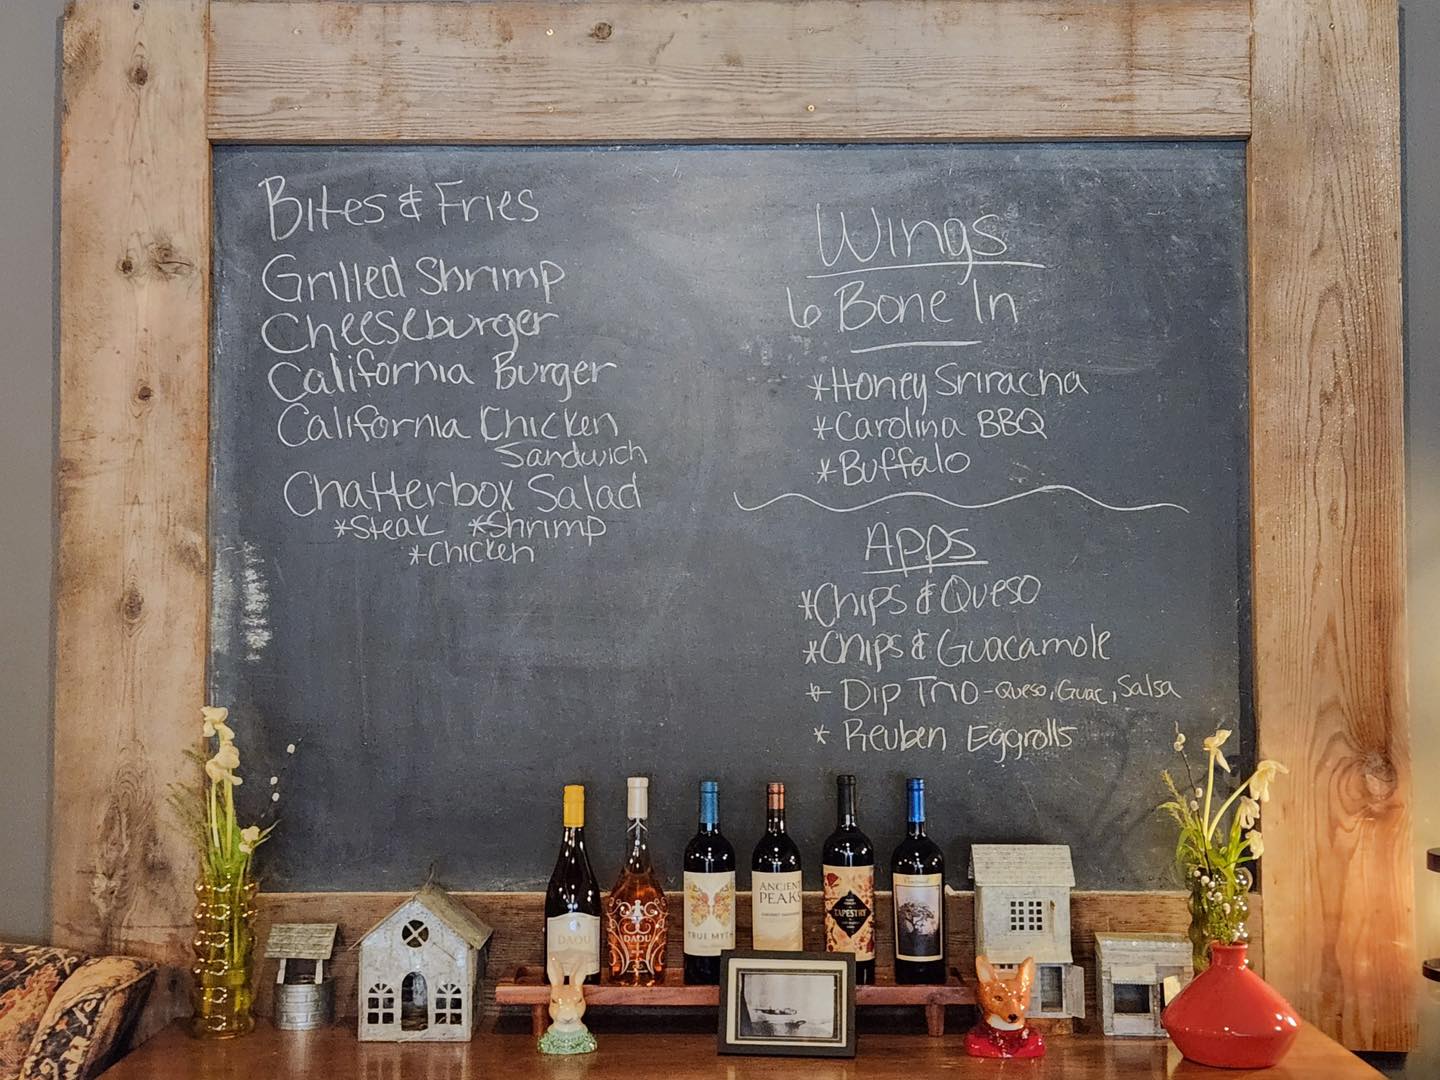 Bites & Fries
Grilled Shrimp
Cheeseburger
California Burger
California Chicken
Sandwich
Chatterbox Salad
*Steak *Shrimp
*Chicken
Wings
6 Bone In
*Honey Sriracha
*Carolina BBQ
*Buffalo
Apps
*Chips & Queso
*Chips & Guacamole
* Dip Trio - Queso, Guac, Salsa
* Reuben Eggrolls
DAOU
DAOU
TRUE MYTH
ANCIENT
PEAKS
CABERNET SAUVIGNON
TAPESTRY